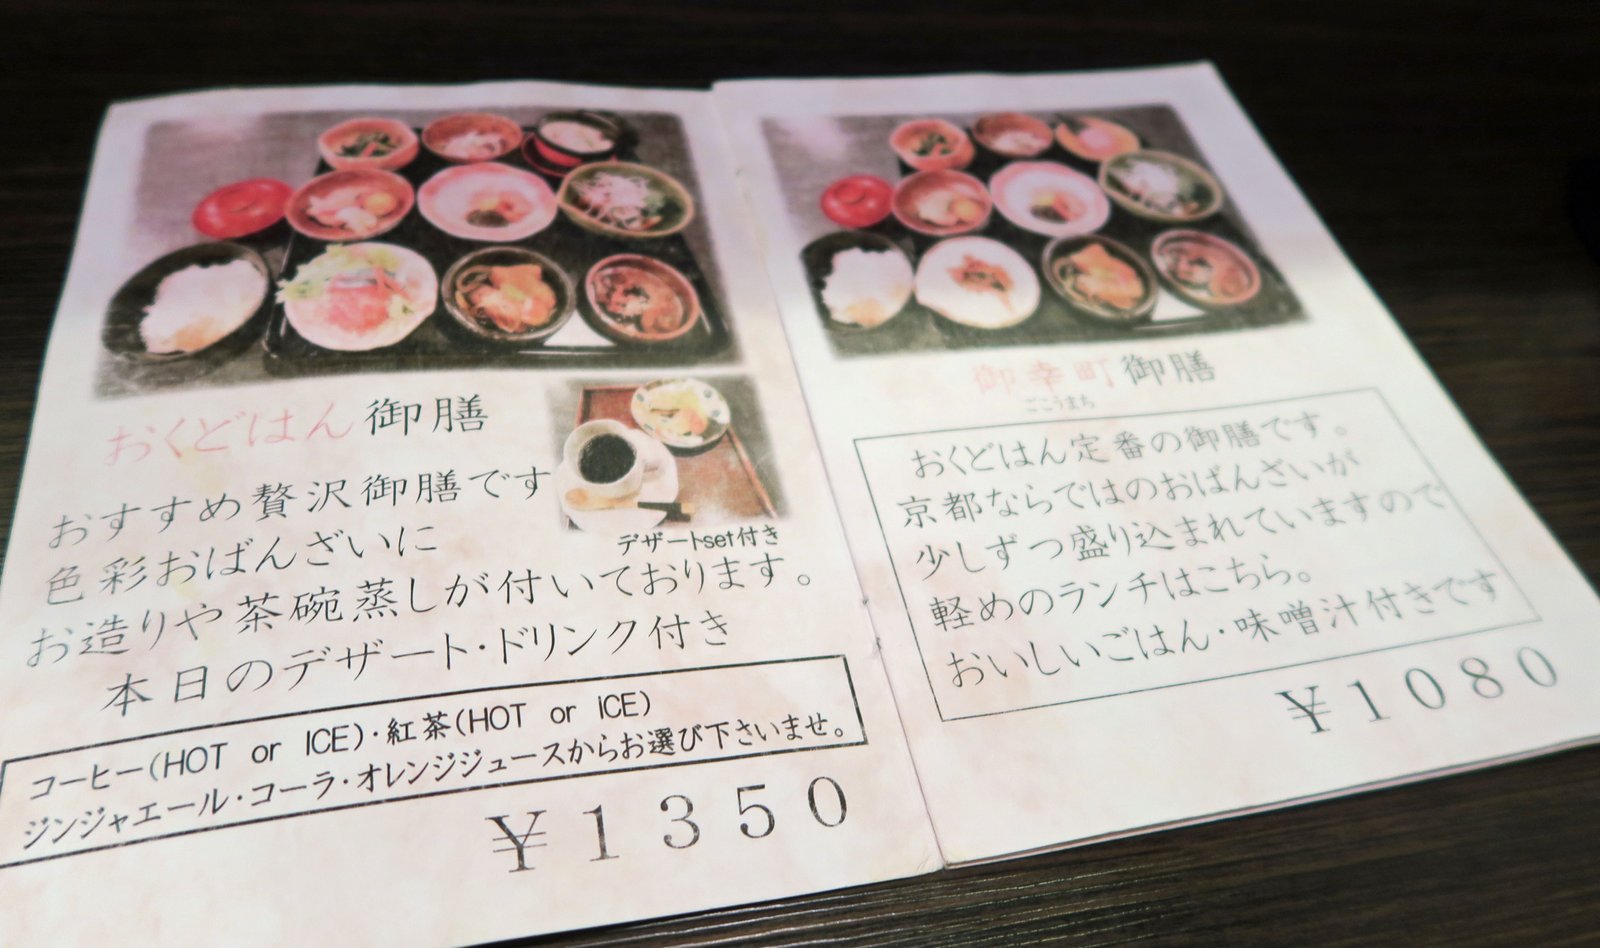 おくどはん御膳
おすすめ贅沢御膳です
色彩おばんざいに
お造りや茶碗蒸しが付いております。
本日のデザート・ドリンク付き
デザートset付き
コーヒー(HOT or ICE)・紅茶(HOT or ICE)
ジンジャエール・コーラ・オレンジジュースからお選び下さいませ。
￥1350
御幸町御膳
ごこうまち
おくどはん定番の御膳です。
京都ならではのおばんざいが
少しずつ盛り込まれていますので
軽めのランチはこちら。
おいしいごはん・味噌汁付きです
￥1080